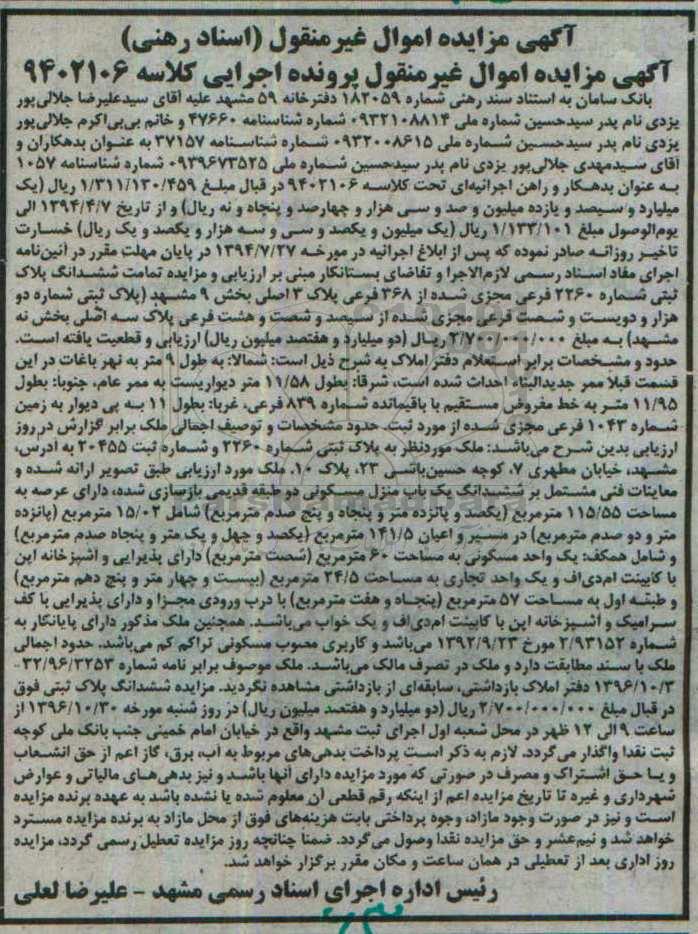 آگهی مزایده اموال غیرمنقول (اسناد رهنی)
آگهی مزایده اموال غیرمنقول پرونده اجرایی کلاسه ۹۴۰۲۱۰۶
بانک سامان به استناد سند رهنی شماره ۱۸۲۰۵۹ دفترخانه ۵۹ مشهد علیه آقای سیدعلیرضا جلالی‌پور
یزدی نام پدر سیدحسین شماره ملی ۰۹۳۲۱۰۸۸۱۴ شماره شناسنامه ۴۷۶۶۰ و خانم بی‌بی‌اکرم جلالی‌پور
یزدی نام پدر سیدحسین شماره ملی ۰۹۳۲۰۰۸۶۱۵ شماره شناسنامه ۳۷۱۵۷ به عنوان بدهکاران و
آقای سیدمهدی جلالی‌پور یزدی نام پدر سیدحسین شماره ملی ۰۹۳۹۶۷۳۵۲۵ شماره شناسنامه ۱۰۵۷
به عنوان بدهکار و راهن اجرائیه‌ای تحت کلاسه ۹۴۰۲۱۰۶ در قبال مبلغ ۱/۳۱۱/۱۳۰/۴۵۹ ریال (یک
میلیارد و سیصد و یازده میلیون و صد و سی هزار و چهارصد و پنجاه و نه ریال) و از تاریخ ۱۳۹۴/۴/۷ الی
یوم‌الوصول مبلغ ۱/۱۳۳/۱۰۱ ریال (یک میلیون و یکصد و سی و سه هزار و یکصد و یک ریال) خسارت
تاخیر روزانه صادر نموده که پس از ابلاغ اجرائیه در مورخه ۱۳۹۴/۷/۲۷ در پایان مهلت مقرر در آئین‌نامه
اجرای مفاد اسناد رسمی لازم‌الاجرا و تقاضای بستانکار مبنی بر ارزیابی و مزایده تمامت ششدانگ پلاک
ثبتی شماره ۲۲۶۰ فرعی مجزی شده از ۳۶۸ فرعی پلاک ۳ اصلی بخش ۹ مشهد (پلاک ثبتی شماره دو
هزار و دویست و شصت فرعی مجزی شده از سیصد و شصت و هشت فرعی پلاک سه اصلی بخش نه
مشهد) به مبلغ ۲/۷۰۰/۰۰۰/۰۰۰ ریال (دو میلیارد و هفتصد میلیون ریال) ارزیابی و قطعیت یافته است.
حدود و مشخصات برابر استعلام دفتر املاک به شرح ذیل است: شمالا: به طول ۹ متر به نهر باغات در این
قسمت قبلا ممر جدیدالبناء احداث شده است، شرقا: بطول ۱۱/۵۸ متر دیواریست به ممر عام، جنوبا: بطول
۱۱/۹۵ متر به خط مفروض مستقیم با باقیمانده شماره ۸۳۹ فرعی، غربا: بطول ۱۱ به پی دیوار به زمین
شماره ۱۰۴۳ فرعی مجزی شده از مورد ثبت. حدود مشخصات و توصیف اجمالی ملک برابر گزارش در روز
ارزیابی بدین شرح می‌باشد: ملک موردنظر به پلاک ثبتی شماره ۲۲۶۰ و شماره ثبت ۲۰۴۵۵ به آدرس،
مشهد، خیابان مطهری ۷، کوچه حسین‌باشی ۲۳، پلاک ۱۰. ملک مورد ارزیابی طبق تصویر ارائه شده و
معاینات فنی مشتمل بر ششدانگ یک باب منزل مسکونی دو طبقه قدیمی بازسازی شده، دارای عرصه به
مساحت ۱۱۵/۵۵ مترمربع (یکصد و پانزده متر و پنجاه و پنج صدم مترمربع) شامل ۱۵/۰۲ مترمربع (پانزده
متر و دو صدم مترمربع) در مسیر و اعیان ۱۴۱/۵ مترمربع (یکصد و چهل و یک متر و پنجاه صدم مترمربع)
و شامل همکف: یک واحد مسکونی به مساحت ۶۰ مترمربع (شصت مترمربع) دارای پذیرایی و اشپزخانه اپن
با کابینت ام‌دی‌اف و یک واحد تجاری به مساحت ۲۴/۵ مترمربع (بیست و چهار متر و پنج دهم مترمربع)
و طبقه اول به مساحت ۵۷ مترمربع (پنجاه و هفت مترمربع) با درب ورودی مجزا و دارای پذیرایی با کف
سرامیک و آشپزخانه اپن با کابینت ام‌دی‌اف و یک خواب می‌باشد. همچنین ملک مذکور دارای پایانکار به
شماره ۲/۹۳۱۵۲ مورخ ۱۳۹۲/۹/۲۳ می‌باشد و کاربری مصوب مسکونی تراکم کم می‌باشد. حدود اجمالی
ملک با سند مطابقت دارد و ملک در تصرف مالک می‌باشد. ملک موصوف برابر نامه شماره ۳۲/۹۶/۳۲۵۳-
۱۳۹۶/۱۰/۳ دفتر املاک بازداشتی، سابقه‌ای از بازداشتی مشاهده نگردید. مزایده ششدانگ پلاک ثبتی فوق
در قبال مبلغ ۲/۷۰۰/۰۰۰/۰۰۰ ریال (دو میلیارد و هفتصد میلیون ریال) در روز شنبه مورخه ۱۳۹۶/۱۰/۳۰ از
ساعت ۹ الی ۱۲ ظهر در محل شعبه اول اجرای ثبت مشهد واقع در خیابان امام خمینی جنب بانک ملی کوچه
ثبت نقدا واگذار می‌گردد. لازم به ذکر است پرداخت بدهی‌های مربوط به آب، برق، گاز اعم از حق انشعاب
و یا حق اشتراک و مصرف در صورتی که مورد مزایده دارای آنها باشد و نیز بدهی‌های مالیاتی و عوارض
شهرداری و غیره تا تاریخ مزایده اعم از اینکه رقم قطعی آن معلوم شده یا نشده باشد به عهده برنده مزایده
است و نیز در صورت وجود مازاد، وجوه پرداختی بابت هزینه‌های فوق از محل مازاد به برنده مزایده مسترد
خواهد شد و نیم‌عشر و حق مزایده نقدا وصول می‌گردد. ضمنا چنانچه روز مزایده تعطیل رسمی گردد، مزایده
روز اداری بعد از تعطیلی در همان ساعت و مکان مقرر برگزار خواهد شد.
رئیس اداره اجرای اسناد رسمی مشهد - علیرضا لعلی